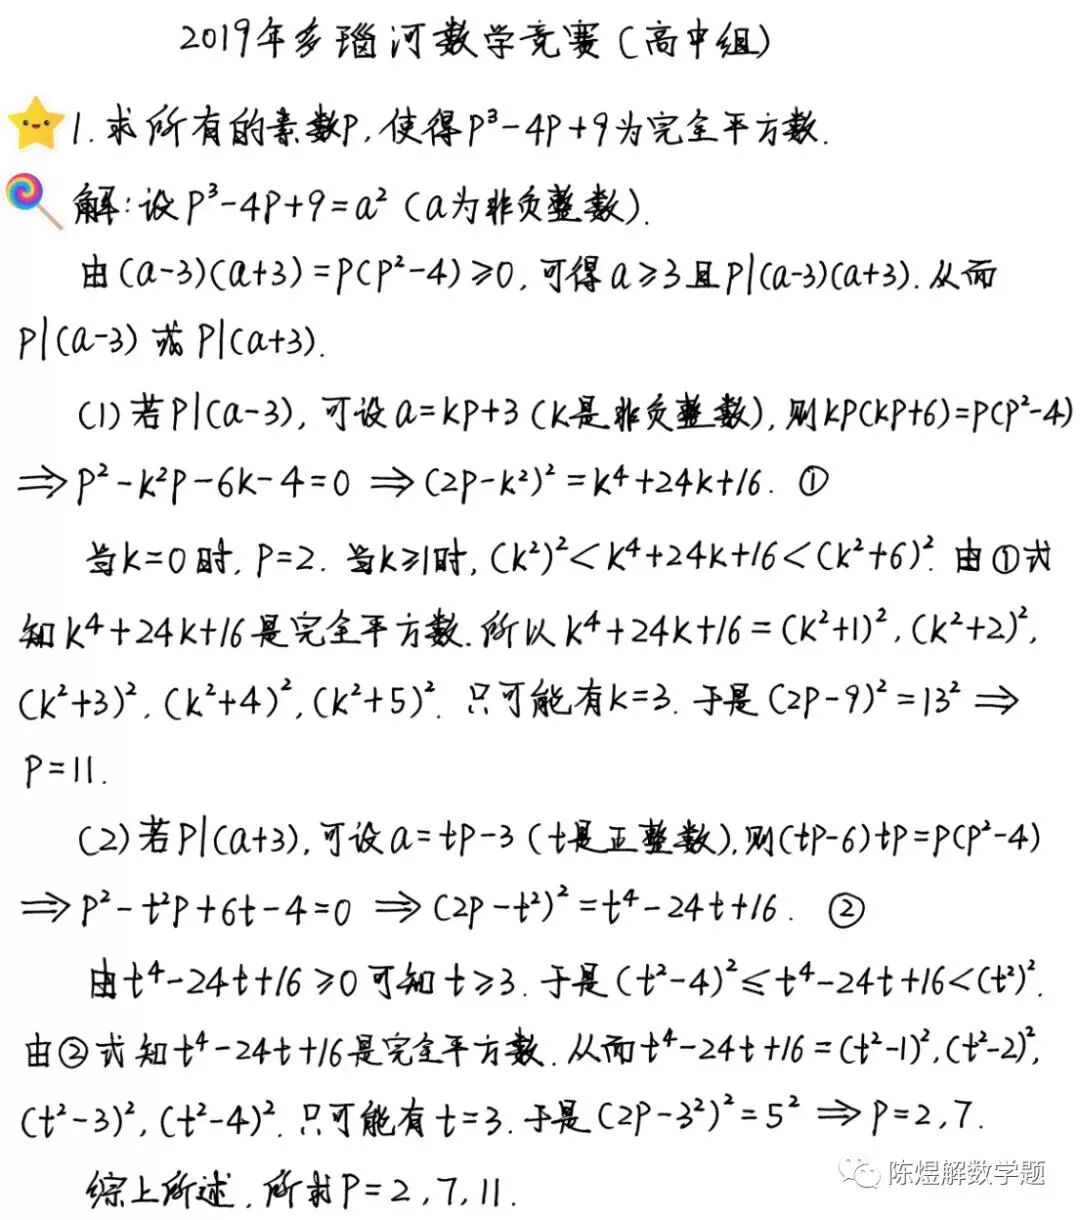 2019年多瑙河数学竞赛(高中组)
1. 求所有的素数P, 使得P³-4P+9为完全平方数.
解: 设P³-4P+9=a² (a为非负整数).
由(a-3)(a+3)=P(P²-4)≥0, 可得a≥3且P|(a-3)(a+3). 从而
P|(a-3) 或 P|(a+3).
(1) 若P|(a-3), 可设a=kP+3 (k是非负整数), 则kP(kP+6)=P(P²-4)
⇒P²-k²P-6k-4=0 ⇒(2P-k²)²=k⁴+24k+16. ①
当k=0时, P=2. 当k≥1时, (k²)²<k⁴+24k+16<(k²+6)². 由①式
知k⁴+24k+16是完全平方数. 所以k⁴+24k+16=(k²+1)², (k²+2)²,
(k²+3)², (k²+4)², (k²+5)². 只可能有k=3. 于是(2P-9)²=13²⇒
P=11.
(2) 若P|(a+3), 可设a=tP-3 (t是正整数), 则(tP-6)tP=P(P²-4)
⇒P²-t²P+6t-4=0 ⇒(2P-t²)²=t⁴-24t+16. ②
由t⁴-24t+16≥0可知t≥3. 于是(t²-4)²≤t⁴-24t+16<(t²)².
由②式知t⁴-24t+16是完全平方数. 从而t⁴-24t+16=(t²-1)², (t²-2)²,
(t²-3)², (t²-4)². 只可能有t=3. 于是(2P-3²)²=5²⇒P=2,7.
综上所述, 所求P=2,7,11.
陈煜解数学题